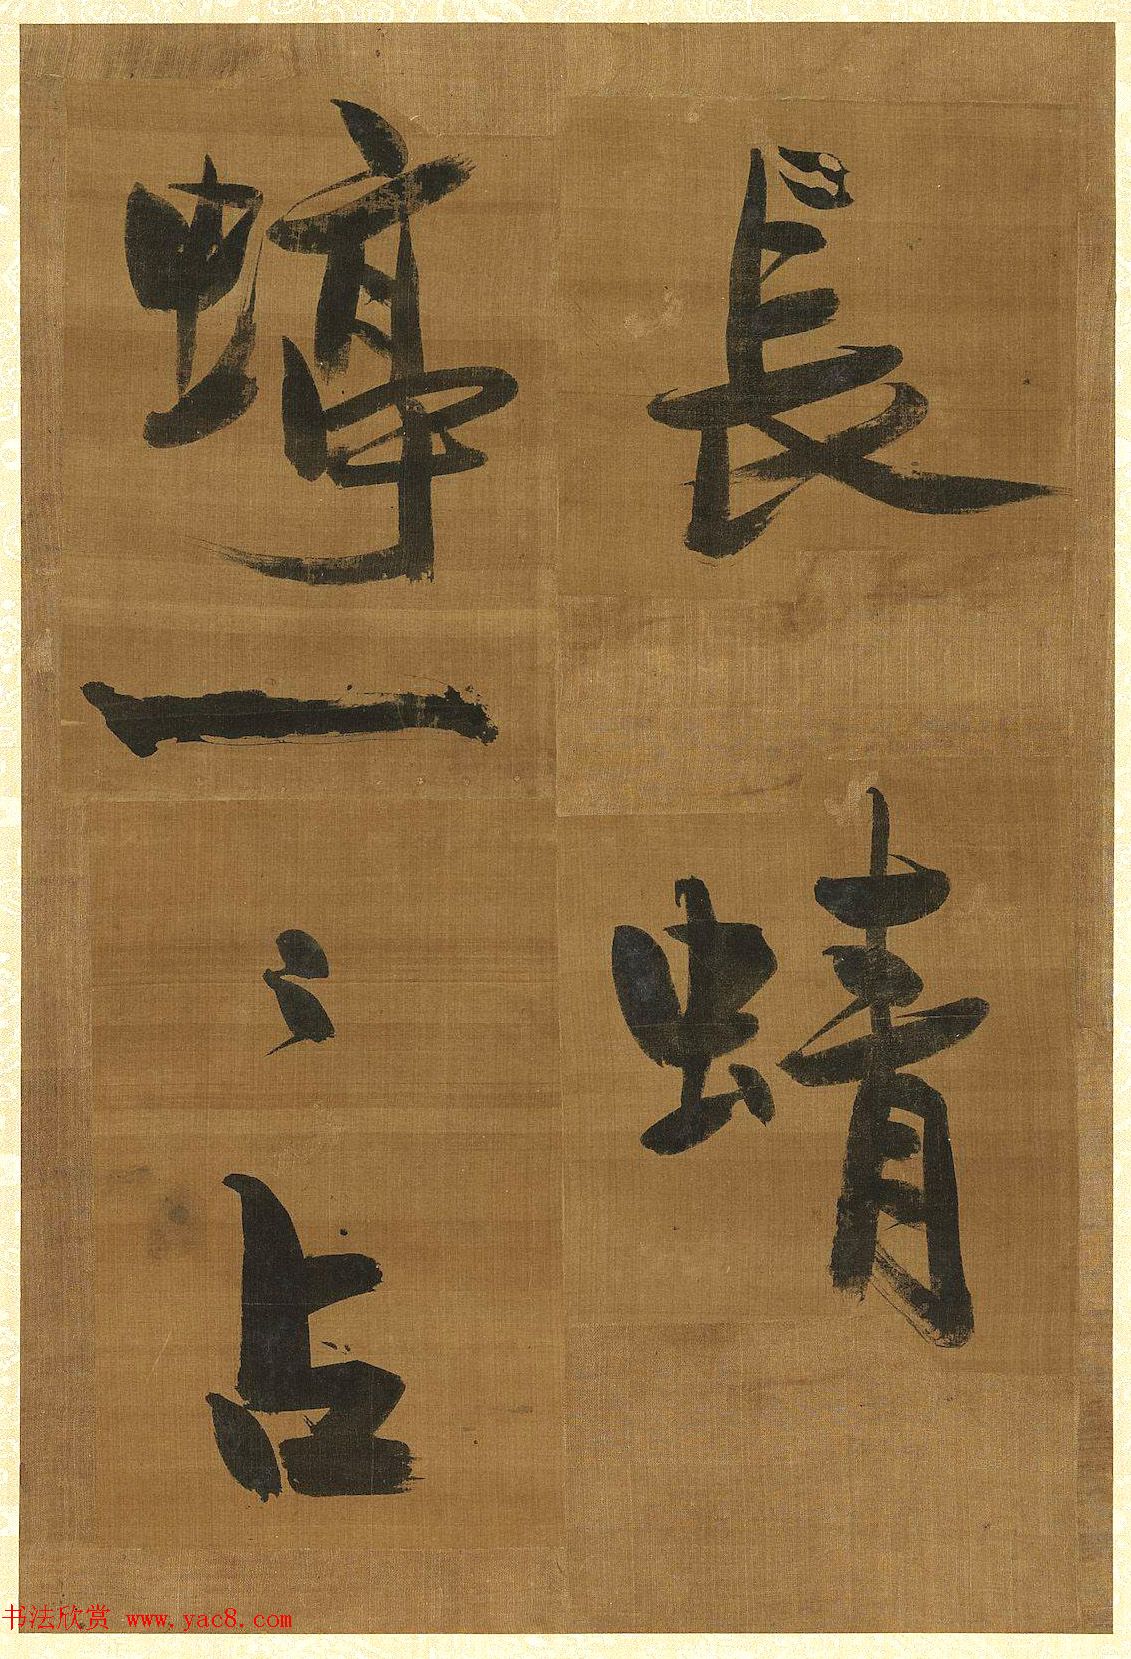 長蜻
蝏一〻占
书法欣赏 www.yac8.com